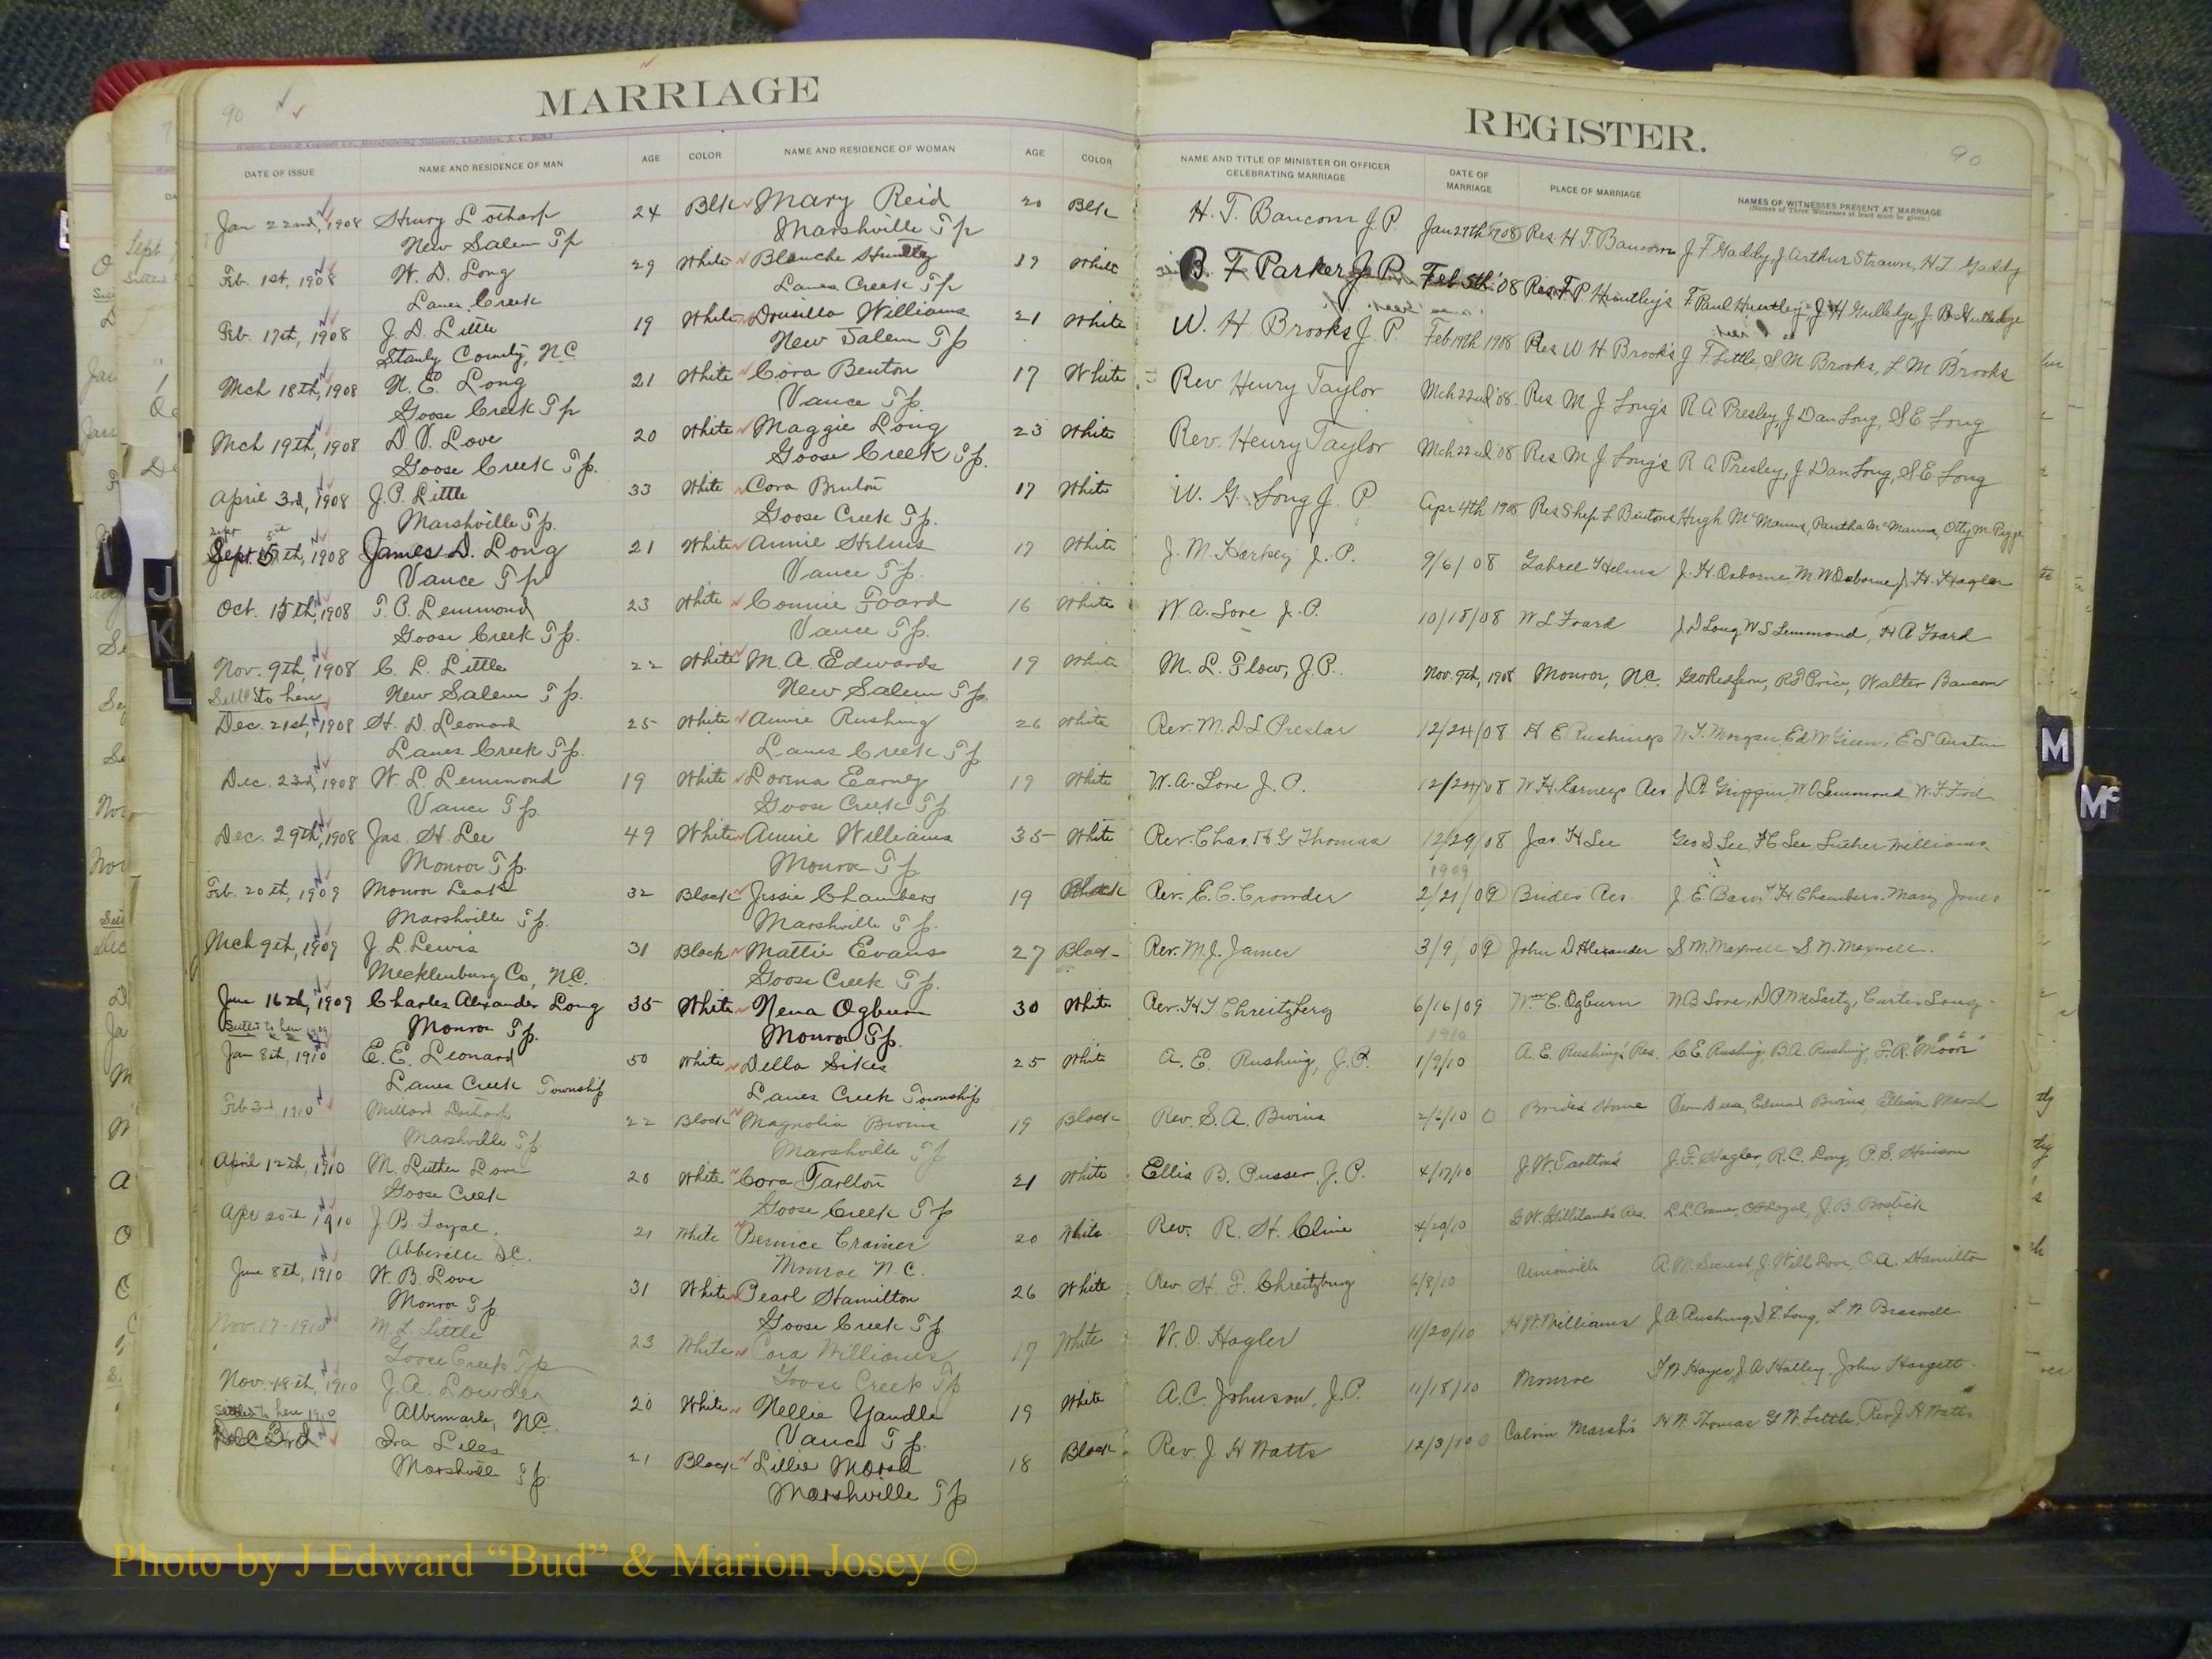 90
MARRIAGE
DATE OF ISSUE NAME AND RESIDENCE OF MAN AGE COLOR NAME AND RESIDENCE OF WOMAN AGE COLOR
Jan 22nd, 1908 Henry Lotharp 24 Blk Mary Reid 20 Blk
New Salem Tp Marshville Tp
Feb. 1st, 1908 W. D. Long 29 White Blanche Huntley 19 White
Lanes Creek Lanes Creek Tp
Feb. 17th, 1908 J. D. Little 19 White Drusilla Williams 21 White
Stanly County, N.C. New Salem Tp
Mch 18th, 1908 N. E. Long 21 White Cora Benton 17 White
Goose Creek Tp Vance Tp.
Mch 19th, 1908 D. V. Love 20 White Maggie Long 23 White
Goose Creek Tp. Goose Creek Tp.
April 3rd, 1908 J. P. Little 33 White Cora Benton 17 White
Marshville Tp. Goose Creek Tp.
Sept. 5th, 1908 James D. Long 21 White Annie Helms 17 White
Vance Tp Vance Tp.
Oct. 15th, 1908 T. P. Lemmond 23 White Connie Foard 16 White
Goose Creek Tp. Vance Tp.
Nov. 9th, 1908 C. L. Little 22 White M. A. Edwards 19 White
Settled to here New Salem Tp. New Salem Tp.
Dec. 21st, 1908 H. D. Leonard 25 White Annie Rushing 26 White
Lanes Creek Tp. Lanes Creek Tp
Dec. 23rd, 1908 W. L. Lemmond 19 White Lorena Earney 19 White
Vance Tp. Goose Creek Tp.
Dec. 29th, 1908 Jas. H. Lee 49 White Annie Williams 35 White
Monroe Tp. Monroe Tp.
Feb. 20th, 1909 Monroe Leak 32 Black Jessie Chambers 19 Black
Marshville Tp. Marshville Tp.
Mch 9th, 1909 J. L. Lewis 31 Black Mattie Evans 27 Black
Mecklenburg Co, N.C. Goose Creek Tp.
June 16th, 1909 Charles Alexander Long 35 White Nena Ogburn 30 White
Settled to here 1909 Monroe Tp. Monroe Tp.
Jan 8th, 1910 E. E. Leonard 50 White Della Sikes 25 White
Lanes Creek Township Lanes Creek Township
Feb 3rd 1910 Millard Lotharp 22 Black Magnolia Bivins 19 Black
Marshville Tp. Marshville Tp
April 12th, 1910 M. Luther Love 20 White Cora Tarlton 21 White
Goose Creek Goose Creek Tp
Apr 20th 1910 J. B. Loyal. 21 White Bernice Cramer 20 White
Abbeville S.C. Monroe N.C.
June 8th, 1910 W. B. Love 31 White Pearl Hamilton 26 White
Monroe Tp Goose Creek Tp
Nov. 17-1910 M. L. Little 23 White Cora Williams 17 White
Goose Creek Tp Goose Creek Tp
Nov. 18th, 1910 J. A. Lowder 20 White Nellie Yandle 19 White
Settled to here 1910 Albemarle, N.C. Vance Tp.
Dec 3rd Ira Liles 21 Black Lillie Marsh 18 Black
Marshville Tp Marshville Tp
REGISTER.
90
NAME AND TITLE OF MINISTER OR OFFICER CELEBRATING MARRIAGE DATE OF MARRIAGE PLACE OF MARRIAGE NAMES OF WITNESSES PRESENT AT MARRIAGE
(Names of Three Witnesses at least must be given.)
H. T. Baucom J. P. Jan 27th 1908 Res. H T. Baucom J F Gaddy, J Arthur Strawn, H L Gaddy
B F Parker J. P. Feb 5th '08 Res F. P. Huntley's F. Paul Huntley J H Gulledge, J. B. Gulledge
W. H Brooks J. P Feb 19th 1908 Res W H Brook's J F Little, S M Brooks, L M Brooks
Rev Henry Taylor Mch 22nd '08 Res M J Long's R A Presley, J Dan Long, S E Long
Rev. Henry Taylor Mch 22nd '08 Res M J Long's R A Presley, J Dan Long, S E Long
W. G. Long J. P Apr 4th 1908 Res Shep L Bentons Hugh McManus, Pantha McManus
J. M. Harkey J. P. 9/6/08 Gabrel Helms J. H. Osborne M. W Osborne J. H. Hagler
W. A. Love J. P. 10/18/08 W L Foard J D Long W S Lemmond, H A Foard
M. L. Flow, J. P. Nov. 9th, 1908 Monroe, N.C. Geo Redfern, R F Price, Walter Baucom
Rev. M. D L Preslar 12/24/08 H. E. Rushings Morgan Ed W Green, E S Austin
W. A. Love J. P. 12/24/08 W. H. Earneys Res J R Griffin, W O Lemmond W. F.
Rev. Chas. H. G Thomas 12/29/08 Jas H Lee Geo S Lee, Luther Williams
1909
Rev. E. C. Crowder 2/21/09 Brides Res. Chambers, Mary Jones
Rev. M. J. James 3/9/09 John D Alexander S M. Maxwell S. N. Maxwell.
Rev. H F. Chreitzberg 6/16/09 Wm C. Ogburn W B Love, Carter Long
1910
A. E. Rushing, J. P. 1/9/10 A. E. Rushing's Res. C. E. Rushing, B. A. Rushing, F. R. Moore
Rev. S. A. Bivins 2/6/10 Brides Home Edmund Bivins, Ellison Marsh
Ellis B. Pusser, J. P. 4/17/10 J. W. Tarlton's J. F. Hagler, R. C. Long, P. S. Hinson
Rev. R. H. Cline 4/20/10 G W. Gilliland's Res. L. L. Cramer, J. B. Bostick
Rev. H. F. Chreitzburg 6/8/10 Unionville A. M. Secrest J. Will Love, O. A. Hamilton
W. O. Hagler 11/20/10 H W Williams J. A. Rushing, D. E. Long, L. N Braswell
A. C. Johnson, J. P. 11/18/10 Monroe J. A Holley, John Hargett
Rev. J H Watts 12/3/10 Calvin Marsh's H. W. Thomas G. W. Little, Rev J. H Watts
J
K
L
M
Mc
Photo by J Edward “Bud” & Marion Josey ©